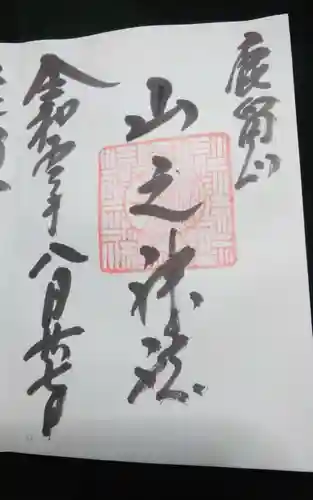 鹿留山
山之神社
令和四年八月廿七日